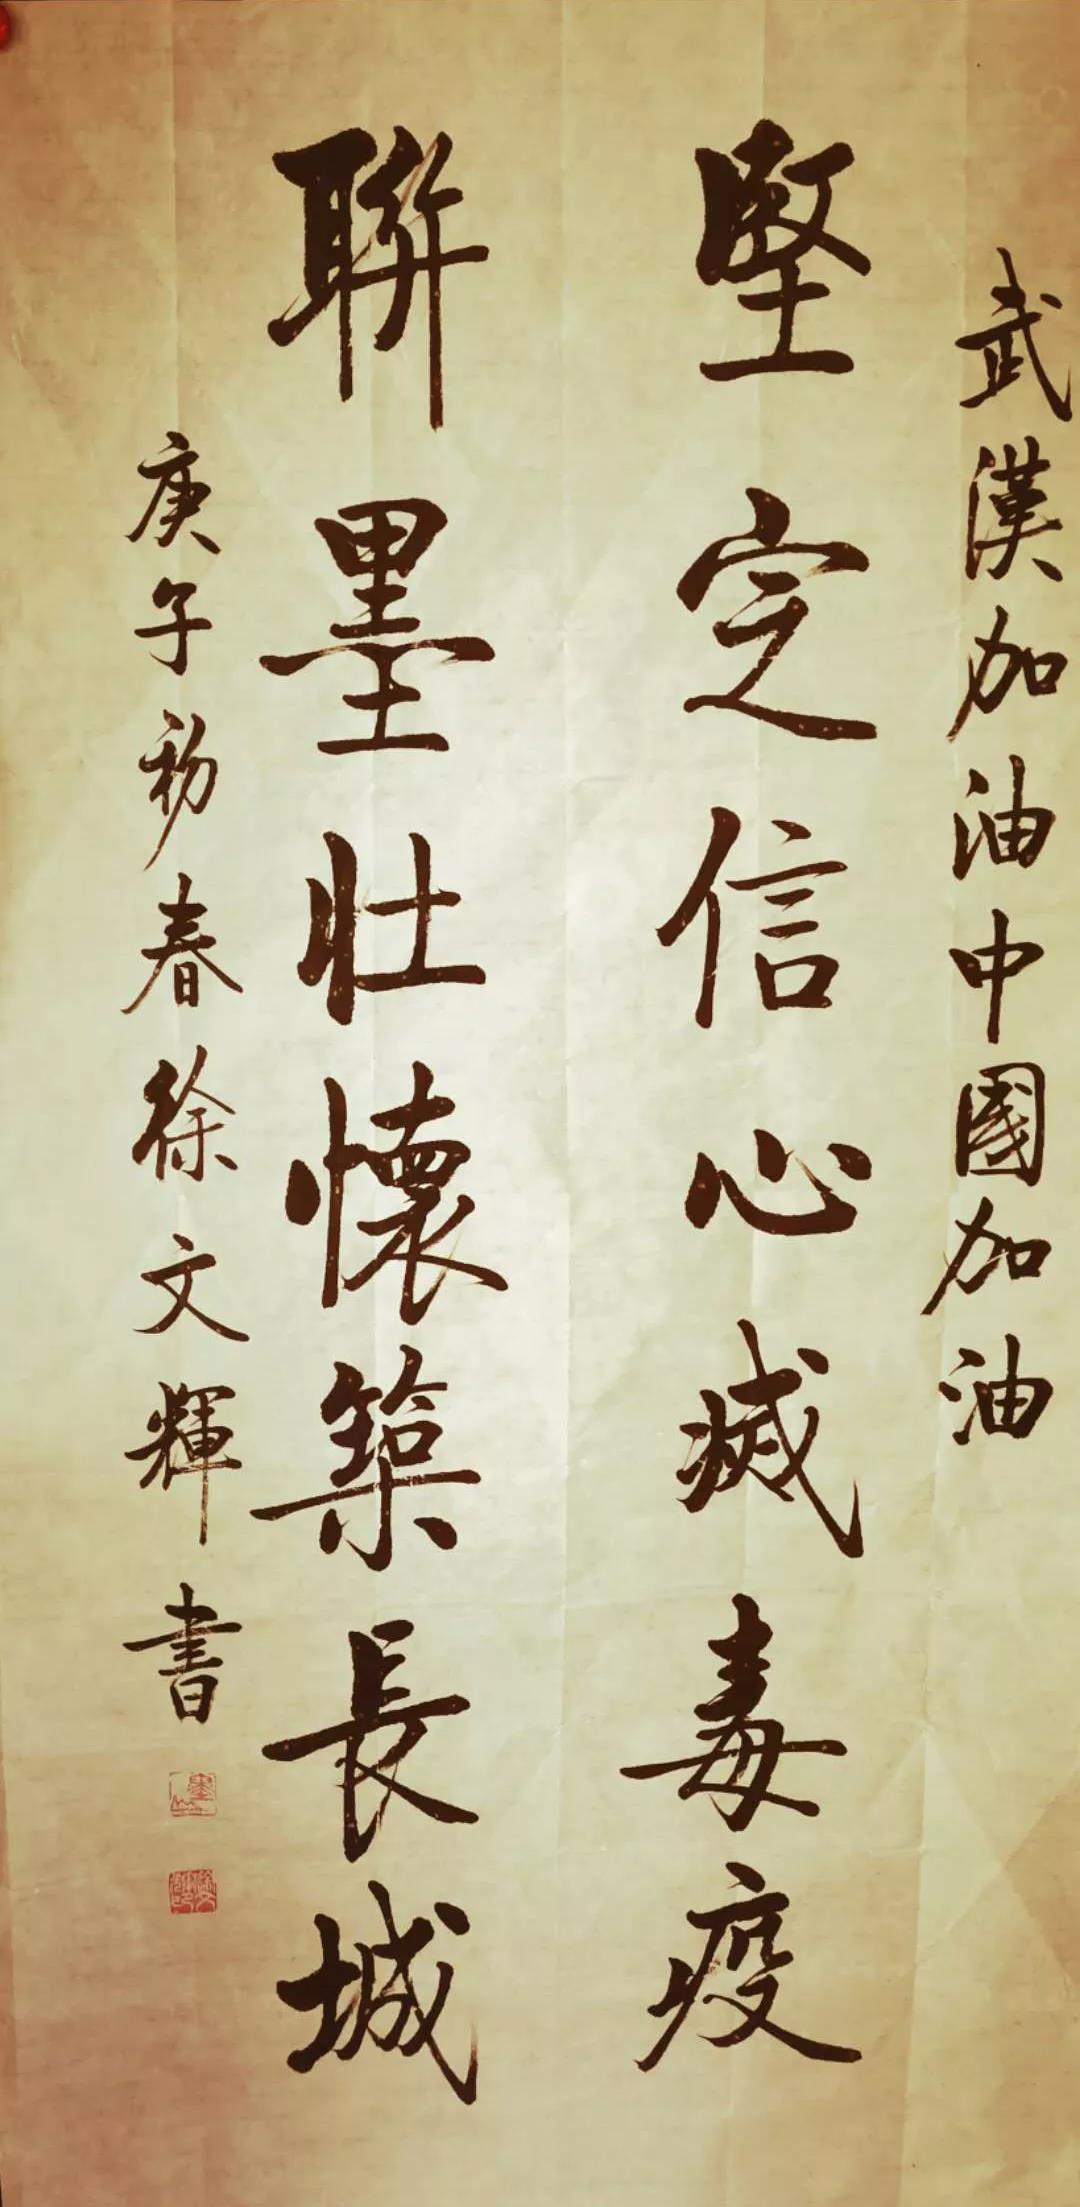 武漢加油中國加油
堅定信心滅毒疫
聯墨壯懷築長城
庚子初春徐文輝書